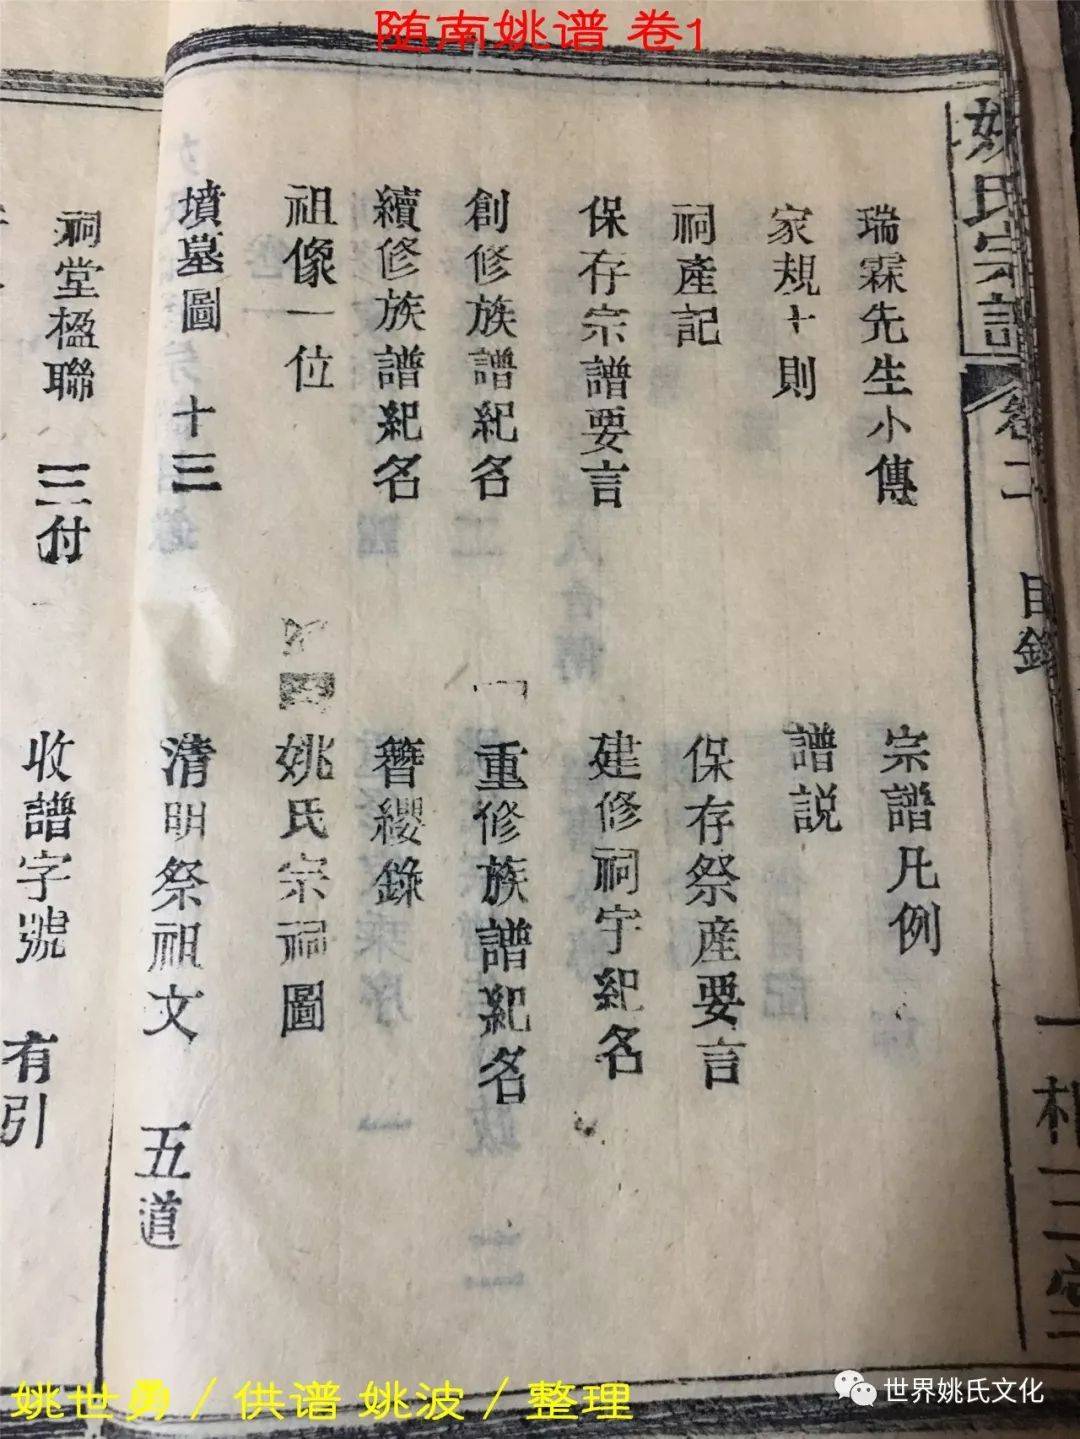 随南姚谱 卷1
姚氏宗譜
目錄
瑞霖先生小傳 宗譜凡例
家規十則 譜説
祠產記 保存祭產要言
保存宗譜要言 建修祠宇紀名
創修族譜紀名 重修族譜紀名
續修族譜紀名 簪纓錄
祖像一位 姚氏宗祠圖
墳墓圖 十三 清明祭祖文 五道
祠堂楹聯 三付 收譜字號 有引
姚世勇/供谱 姚波/整理
世界姚氏文化